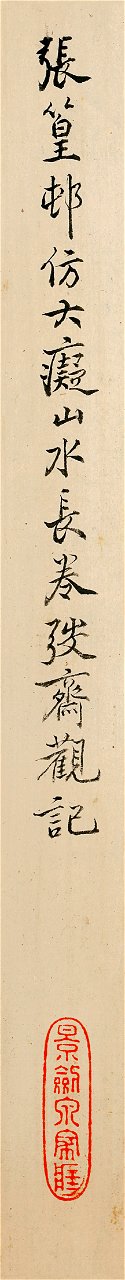 張篁邨仿大癡山水長卷弢齋觀記
景劍泉